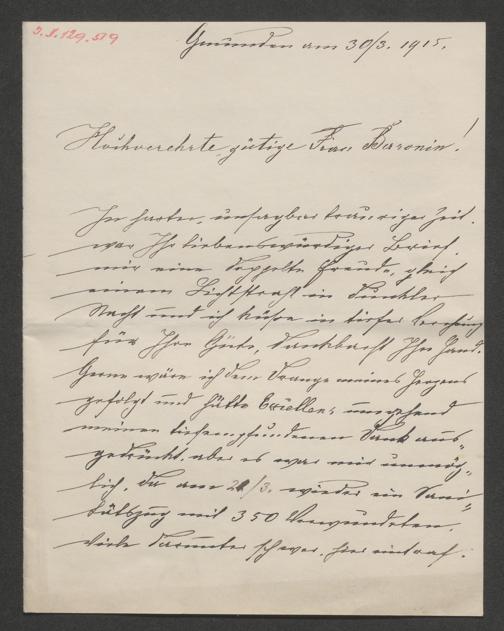 3.1.129.519
Gmunden am 30/3. 1915.
Hochverehrte, gütige Frau Baronin!
In harter, unsagbar trauriger Zeit.
war Ihr liebenswürdiger Brief
mir eine doppelte Freude, gleich
einem Lichtstrahl in dunkler
Nacht und ich küsse in tiefer Verehrung
für Ihre Güte, dankbarst Ihre Hand.
Gerne wäre ich dem Drange meines Herzens
gefolgt und hätte Exzellenz umgehend
meinen tiefempfundenen Dank aus-
gedrückt. aber es war mir unmög-
lich, da am 24/3. wieder ein Sani-
tätszug mit 350 Verwundeten.
viele darunter schwer, hier eintraf.